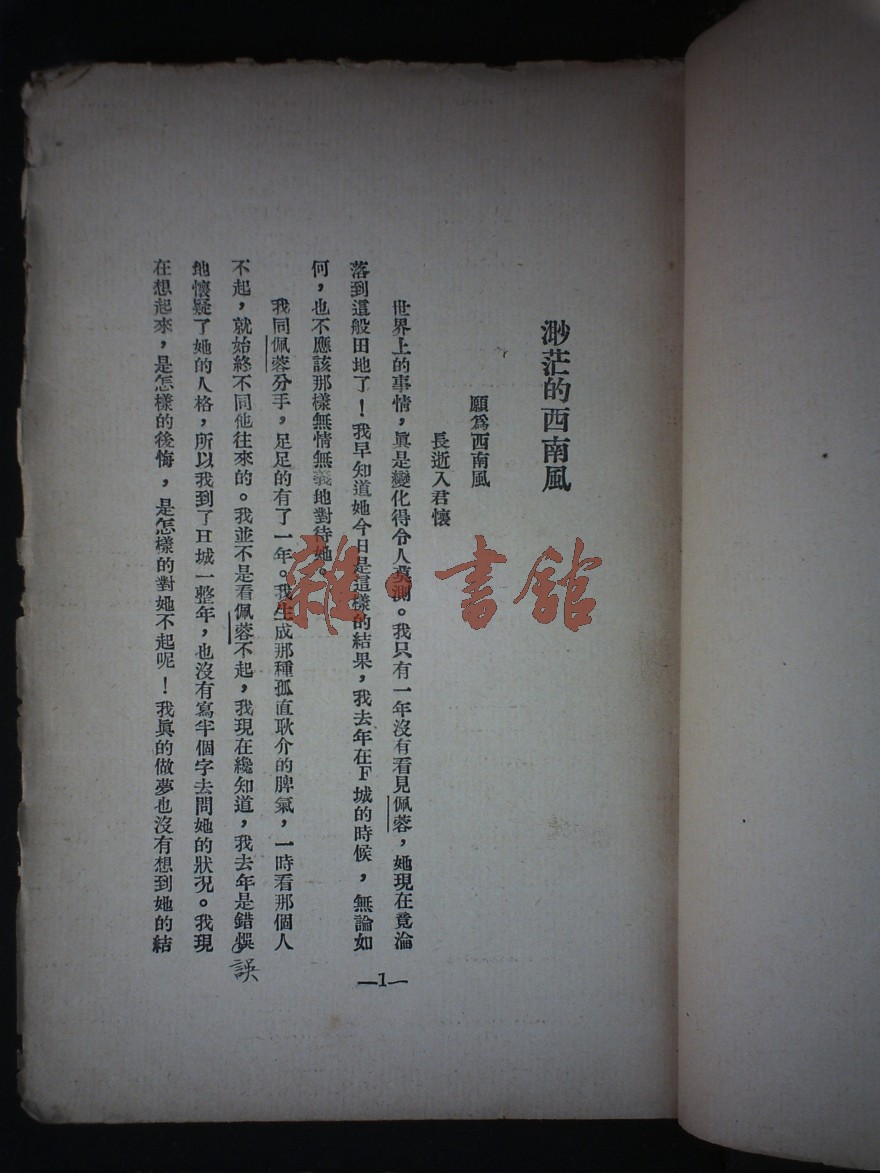 渺茫的西南風
願爲西南風
長逝入君懷
世界上的事情，眞是變化得令人莫測。我只有一年沒有看見佩蓉，她現在竟淪
落到這般田地了！我早知道她今日是這樣的結果，我去年在F城的時候，無論如
何，也不應該那樣無情無義地對待她。
我同佩蓉分手，足足的有了一年。我生成那種孤直耿介的脾氣，一時看那個人
不起，就始終不同他往來的。我並不是看佩蓉不起，我現在纔知道，我去年是錯悞
誤
地懷疑了她的人格，所以我到了H城一整年，也沒有寫半個字去問她的狀況。我現
在想起來，是怎樣的後悔，是怎樣的對她不起呢！我眞的做夢也沒有想到她的結
—1—
雜·書館